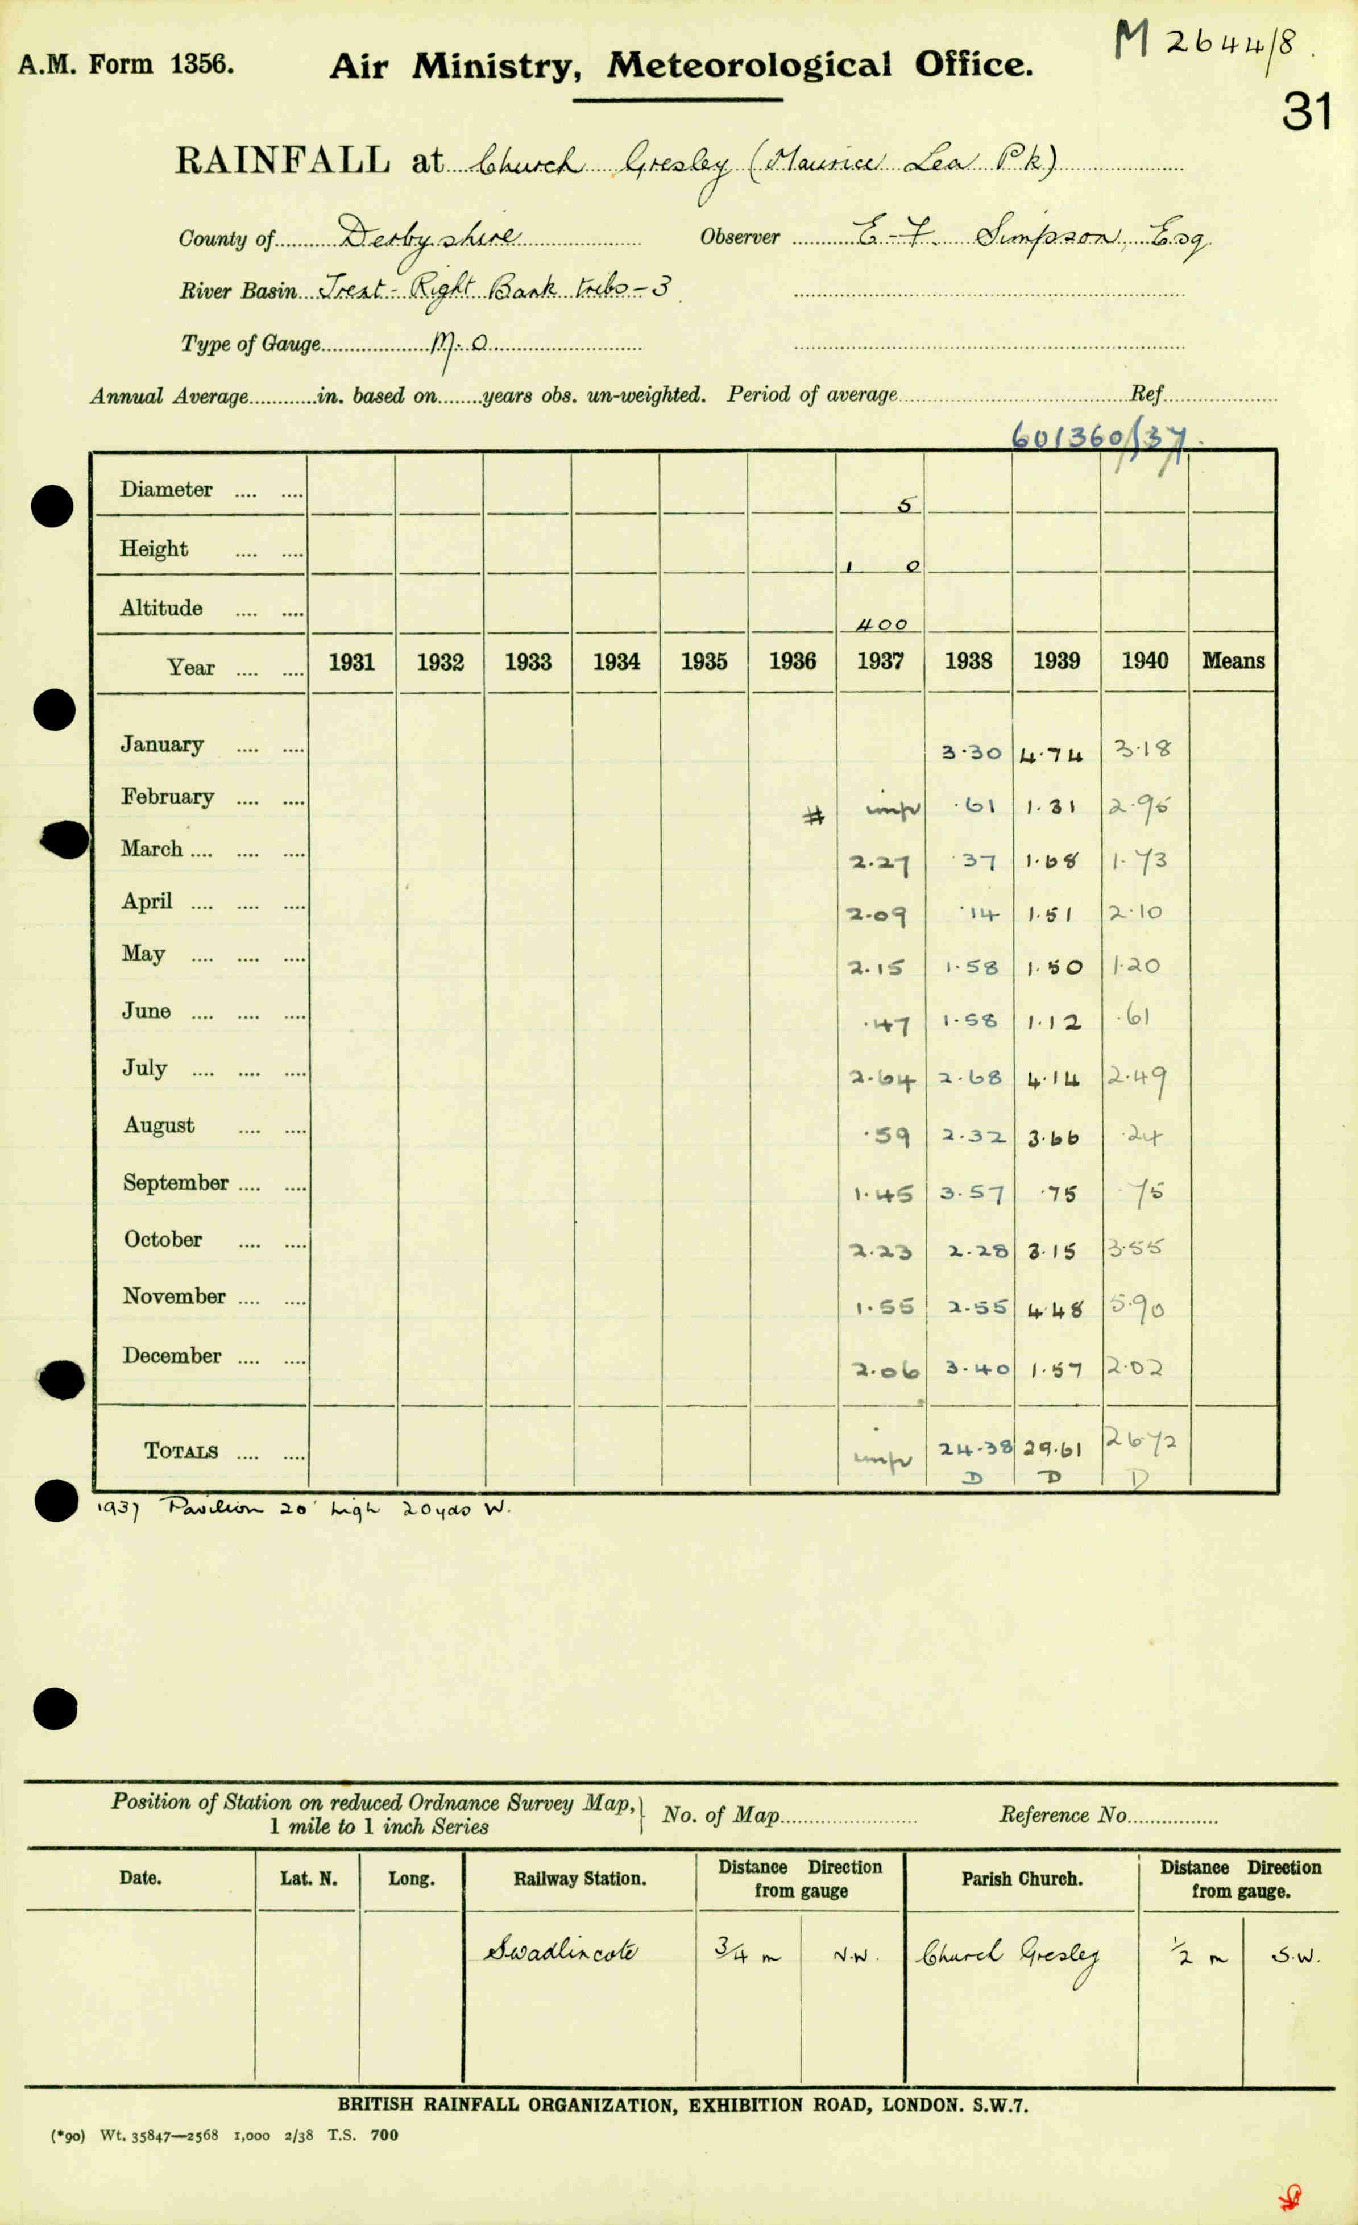 M 2644/8.
A.M. Form 1356. Air Ministry, Meteorological Office.
31
RAINFALL at Church Gresley (Maurice Lea Pk)
County of Derbyshire Observer E-F. Simpson, Esq.
River Basin Trent - Right Bank tribs - 3
Type of Gauge M.O
Annual Average in. based on years obs. un-weighted. Period of average Ref.
601360/37.
Diameter 5
Height 1 0
Altitude 400
Year 1931 1932 1933 1934 1935 1936 1937 1938 1939 1940 Means
January 3.30 4.74 3.18
February # imp .61 1.31 2.95
March 2.27 .37 1.68 1.73
April 2.09 .14 1.51 2.10
May 2.15 1.58 1.50 1.20
June .47 1.58 1.12 .61
July 2.64 2.68 4.14 2.49
August .59 2.32 3.66 .24
September 1.45 3.57 .75 .75
October 2.23 2.28 3.15 3.55
November 1.55 2.55 4.48 5.90
December 2.06 3.40 1.57 2.02
TOTALS imp 24.38 29.61 26.72
D D D
1937 Pavilion 20' high 20yds W.
Position of Station on reduced Ordnance Survey Map, No. of Map Reference No.
1 mile to 1 inch Series
Date. Lat. N. Long. Railway Station. Distance Direction from gauge Parish Church. Distance Direction from gauge.
Swadlincote 3/4 m N.W. Church Gresley 1/2 m S.W.
BRITISH RAINFALL ORGANIZATION, EXHIBITION ROAD, LONDON. S.W.7.
(*90) Wt. 35847—2568 1,000 2/38 T.S. 700